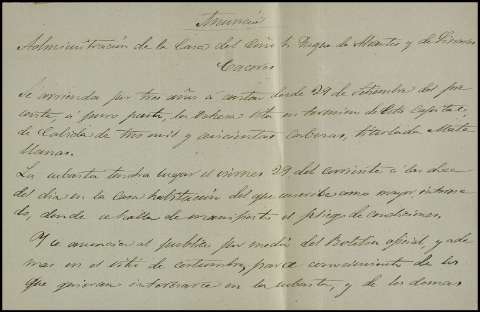 Anuncio
Administración de la Casa del Exmo Sr. Duque de Montes y de
Cáceres
Se arrienda por tres años á contar desde 29 de setiembre del
á puro pasto, la dehesa sita en termino de esta Capital,
de Cabida de tres mil y quinientas cabezas, titulada Mata
llanas.
La subasta tendra lugar el viernes 29 del corriente á las doce
del dia en la Casa habitación del que suscribe como mayor
donde se halla de manifiesto el pliego de condiciones.
Y se anuncia al publico por medio del Boletin oficial, y ade
mas en el sitio de costumbre, para conocimiento de los
que quieran interesarse en la subasta, y de los demas